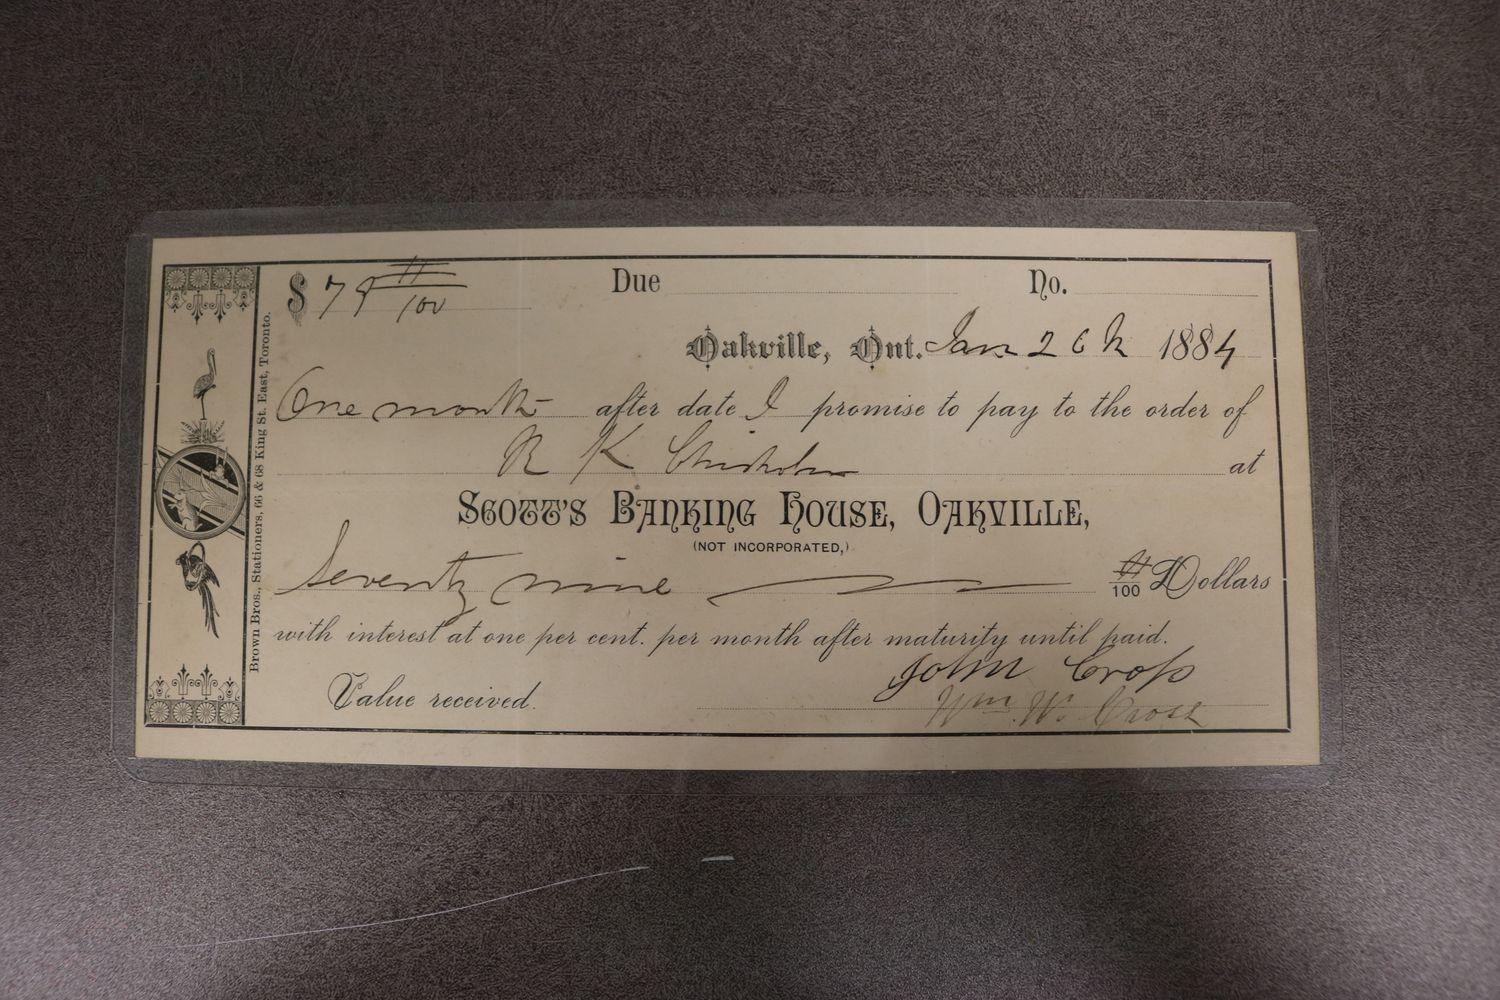 $ 79 11/100 Due No.
Oakville, Ont. Jan 26th 1884
One month after date I promise to pay to the order of
R K Chisholm at
SCOTT'S BANKING HOUSE, OAKVILLE,
(NOT INCORPORATED,)
Seventy nine 11/100 Dollars
with interest at one per cent. per month after maturity until paid.
Value received.
John Cross
Wm. W. Cross
Brown Bros., Stationers, 66 & 68 King St. East, Toronto.